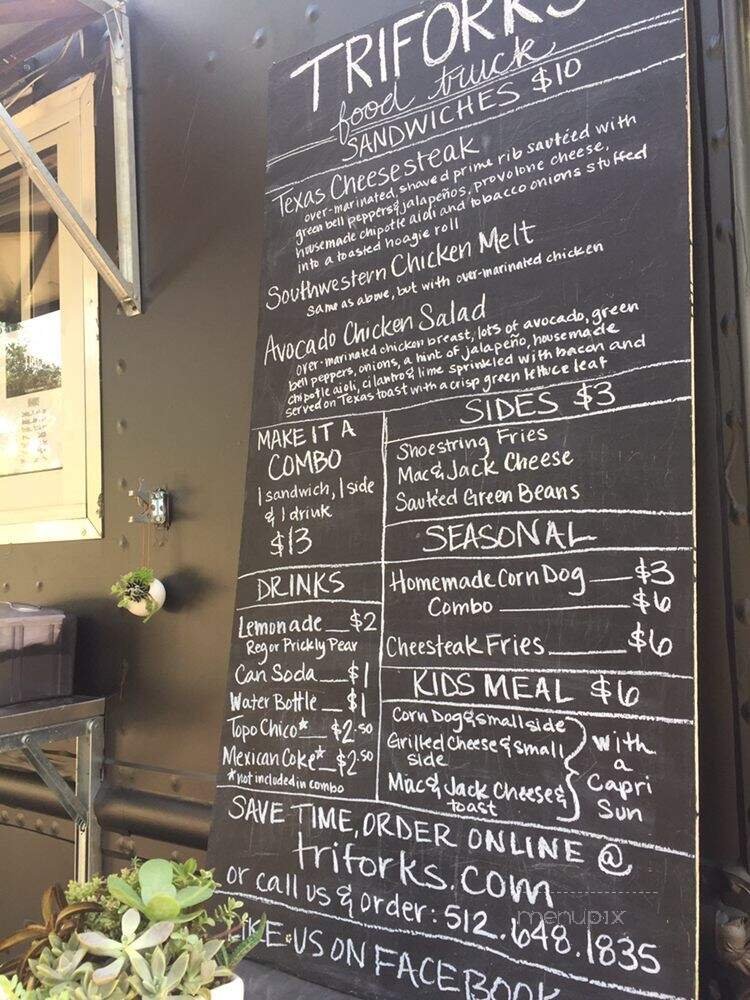 TRIFORKS
food truck
SANDWICHES $10
Texas Cheesesteak
over-marinated, shaved prime rib sautéed with
green bell peppers & jalapeños, provolone cheese,
housemade chipotle aioli and tobacco onions stuffed
into a toasted hoagie roll
Southwestern Chicken Melt
same as above, but with over-marinated chicken
Avocado Chicken Salad
over-marinated chicken breast, lots of avocado, green
bell peppers, onions, a hint of jalapeño, housemade
chipotle aioli, cilantro & lime sprinkled with bacon and
served on Texas toast with a crisp green lettuce leaf
MAKE IT A
COMBO
1 sandwich, 1 side
& 1 drink
$13
DRINKS
Lemonade $2
Reg or Prickly Pear
Can Soda $1
Water Bottle $1
Topo Chico* $2.50
Mexican Coke* $2.50
*not included in combo
SIDES $3
Shoestring Fries
Mac & Jack Cheese
Sautéed Green Beans
SEASONAL
Homemade Corn Dog $3
Combo $6
Cheesteak Fries $6
KIDS MEAL $6
Corn Dog & small side
Grilled Cheese & small
side
Mac & Jack Cheese &
toast
with
a
Capri
Sun
SAVE TIME, ORDER ONLINE @
triforks.com
or call us & order: 512.648.1835
LIKE US ON FACEBOOK
menupix